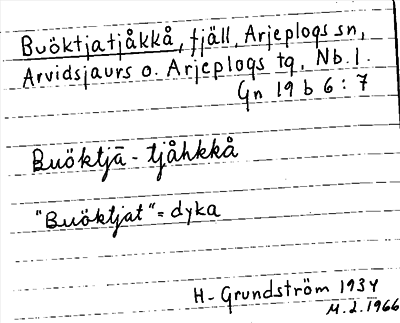 Buöktjatjåkkå, fjäll, Arjeplogs sn,
Arvidsjaurs o. Arjeplogs tg, Nb. l.
Gn 19 b 6 : 7
Buöktjā - tjåhkkå
"Buöktjat" = dyka
H. Grundström 1934
M. 2. 1966